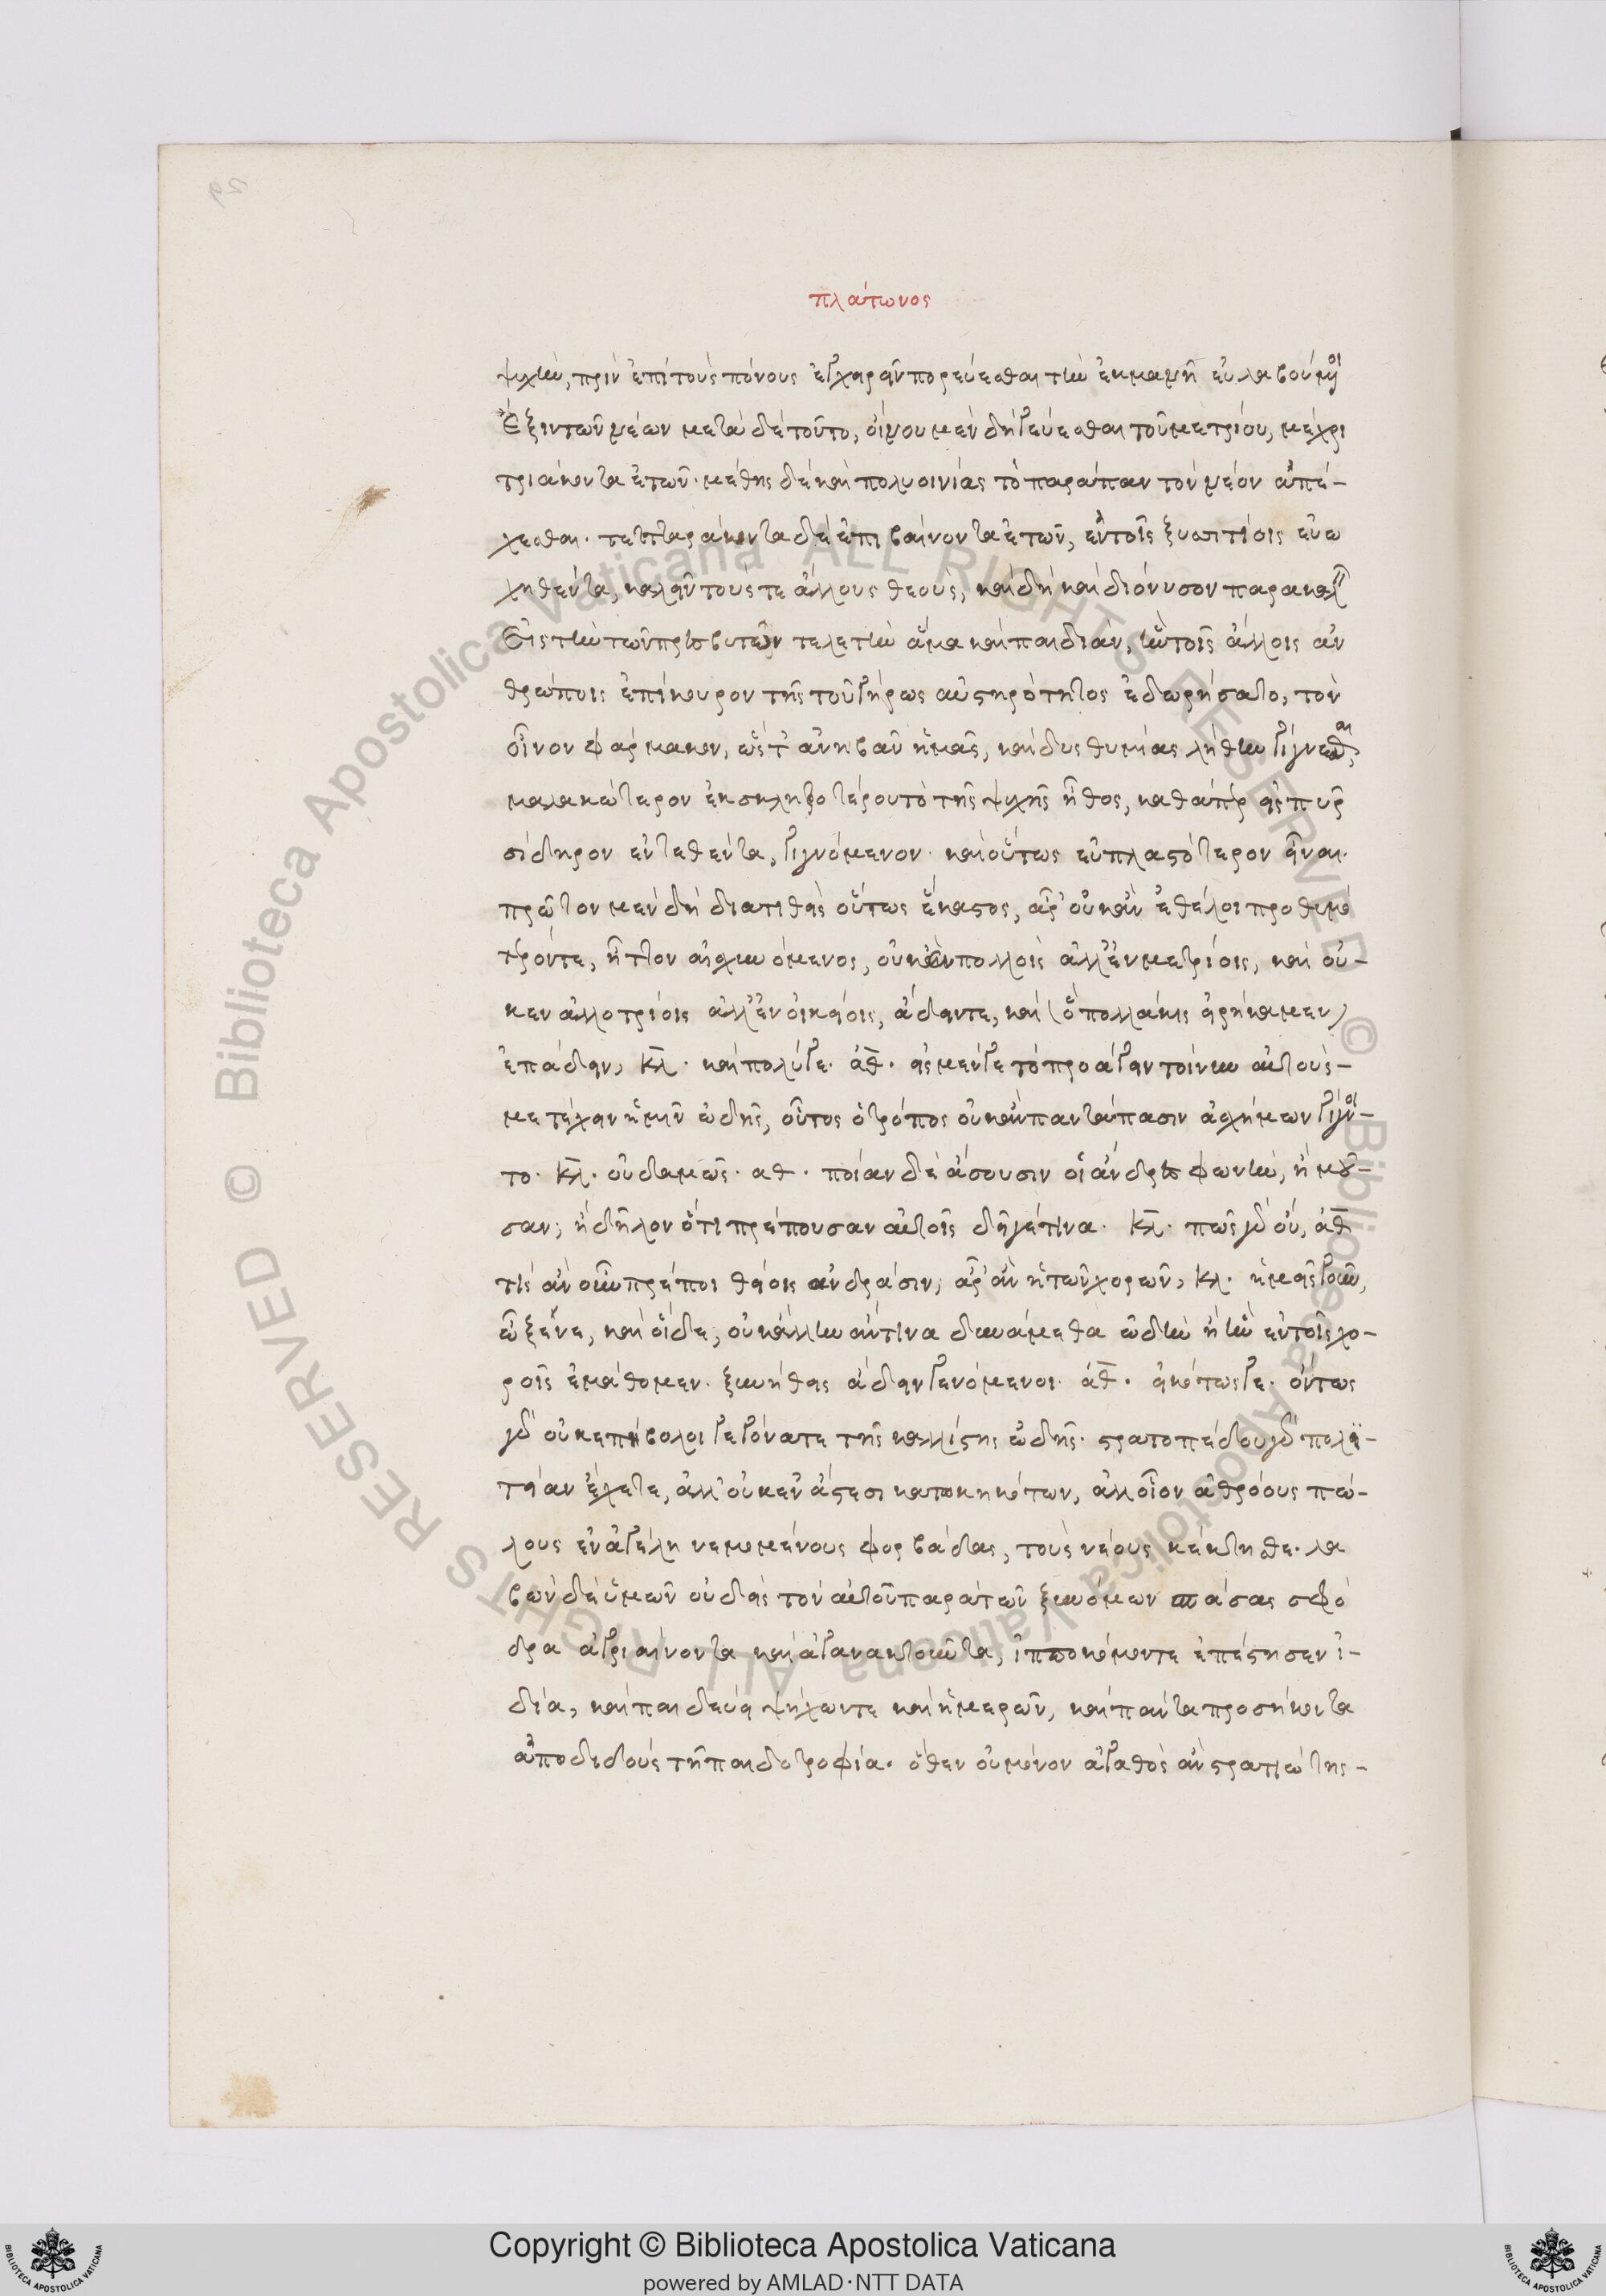 πλάτωνος
ψυχὴν, πρὶν ἐπὶ τοὺς πόνους ἐγχειρεῖν πορεύεσθαι τὴν ἐκμανῆ εὐλαβούμενοι
Ἕξιν τῶν νέων μετὰ δὲ τοῦτο, οἴνου μὲν δὴ γεύεσθαι τοῦ μετρίου, μέχρι
τριάκοντα ἐτῶν· μέθης δὲ καὶ πολυοινίας τὸ παράπαν τὸν νέον ἀπέ-
χεσθαι· τετταράκοντα δὲ ἐπιβαίνοντα ἐτῶν, ἐν τοῖς ξυσσιτίοις εὐω
χηθέντα, καλεῖν τούς τε ἄλλους θεοὺς, καὶ δὴ καὶ διόνυσον παρακαλεῖν
Εἰς τὴν τῶν πρεσβυτῶν τελετὴν ἅμα καὶ παιδιὰν, ἣν τοῖς ἄλλοις ἀν
θρώποις ἐπίκουρον τῆς τοῦ γήρως αὐστηρότητος ἐδωρήσατο, τὸν
οἶνον φάρμακον, ὥστ' ἀνηβᾶν ἡμᾶς, καὶ δυσθυμίας λήθην γίγνεσθαι,
μαλακώτερον ἐκ σκληροτέρου τὸ τῆς ψυχῆς ἦθος, καθάπερ εἰς πῦρ
σίδηρον ἐντεθέντα, γιγνόμενον· καὶ οὕτως εὐπλαστότερον εἶναι·
πρῶτον μὲν δὴ διατιθεὶς οὕτως ἕκαστος, ἆρ' οὐκ ἂν ἐθέλοι προθυμό
τερόν τε, ἧττον αἰσχυνόμενος, οὐκ ἐν πολλοῖς ἀλλ' ἐν μετρίοις, καὶ οὐ-
κ ἐν ἀλλοτρίοις ἀλλ' ἐν οἰκείοις, ἄδειν τε, καὶ (ὃ πολλάκις εἰρήκαμεν)
ἐπάδειν, κλ. καὶ πολύ γε. ἀθ. εἰς μέν γε τὸ προάγειν τοίνυν αὐτοὺς-
μετέχειν ἡμῖν ὠδῆς, οὗτος ὁ τρόπος οὐκ ἂν παντάπασιν ἀσχήμων γίγνοι-
το. κλ. οὐδαμῶς. αθ. ποίαν δὲ ἄσουσιν οἱ ἄνδρες φωνὴν, ἢ μοῦ-
σαν; ἢ δῆλον ὅτι πρέπουσαν αὐτοῖς δεῖ γέ τινα. κλ. πῶς γὰρ οὔ, ἀθ
τίς ἂν οὖν πρέποι θείοις ἀνδράσιν; ἆρ' ἂν ἡ τῶν χορῶν, κλ. ἡμεῖς γοῦν,
ὦ ξεῖνε, καὶ οἵδε, οὐκ ἄλλην ἄν τινα δυναίμεθα ὠδὴν ἢ ἣν ἐν τοῖς χο-
ροῖς ἐμάθομεν. ξυνήθεις ἄδειν γενόμενοι. ἀθ. εἰκότως γε. ὄντως
γὰρ οὐκ ἐπήβολοι γεγόνατε τῆς καλλίστης ὠδῆς. στρατοπέδου γὰρ πολι-
τείαν ἔχετε, ἀλλ' οὐκ ἐν ἄστεσι κατῳκηκότων, ἀλλ' οἷον ἀθρόους πώ-
λους ἐν ἀγέλῃ νεμομένους φορβάδας, τοὺς νέους κέκτησθε. λα
βὼν δὲ ὑμῶν οὐδεὶς τὸν αὐτοῦ παρὰ τῶν ξυνόμων σπάσας σφό
δρα ἀγριαίνοντα καὶ ἀγανακτοῦντα, ἱπποκόμον τε ἐπέστησεν ἰ-
δία, καὶ παιδεύει ψήχων τε καὶ ἡμερῶν, καὶ πάντα προσήκοντα
ἀποδιδοὺς τῇ παιδοτροφία. ὅθεν οὐ μόνον ἀγαθὸς ἂν στρατιώτης-
Copyright © Biblioteca Apostolica Vaticana
powered by AMLAD·NTT DATA